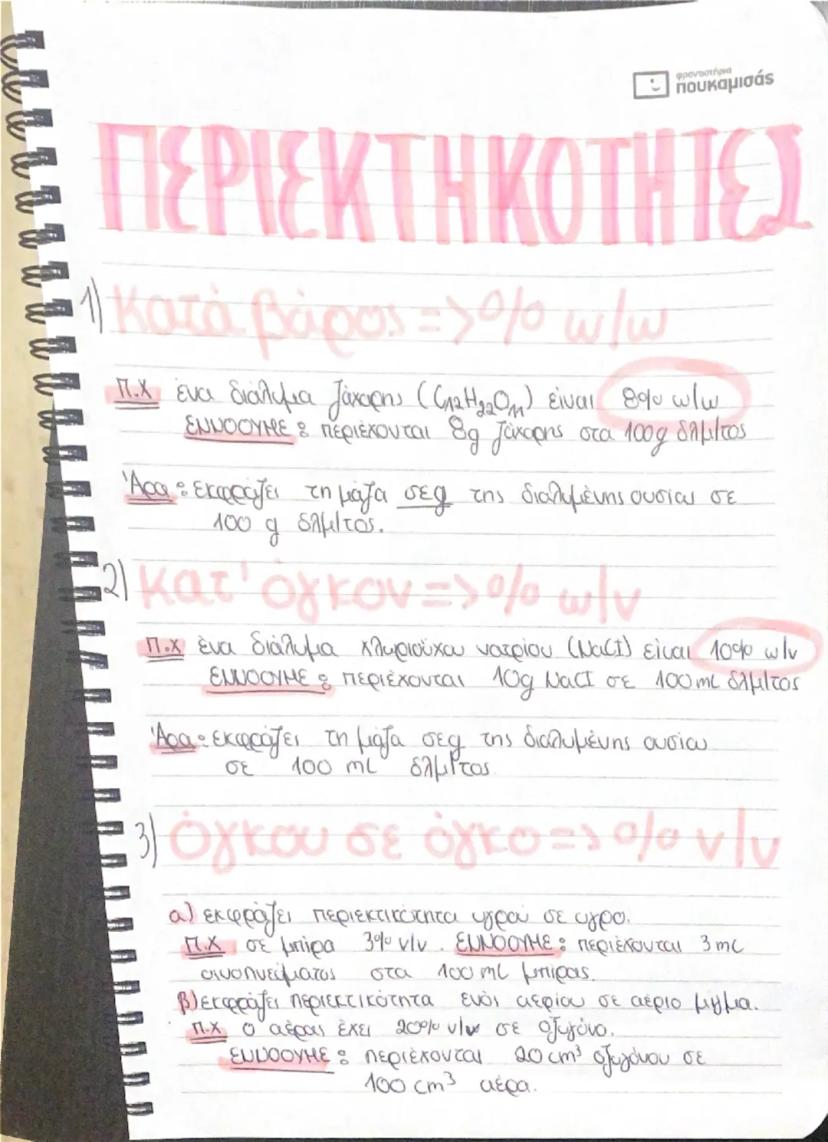 φροντιστήρια
πουκαμισάς
ΠΕΡΙΕΚΤΗΚΟΤΗΤΕΣ
1) Κατά βάρος => % w/w
Π.Χ ένα διάλυμα ζάχαρης (C12H22O11) είναι 8% w/w
ΕΝΝΟΟΥΜΕ : περιέχονται 8g ζάχαρης στα 100g δλμ/τος
Άρα : εκφράζει τη μάζα σε g της διαλυμένης ουσίας σε
100 g δλμ/τος.
2) Κατ' όγκον => % w/v
Π.Χ ένα διάλυμα χλωριούχου νατρίου (NaCl) είναι 10% w/v
ΕΝΝΟΟΥΜΕ : περιέχονται 10g NaCl σε 100mL δλμ/τος
Άρα : εκφράζει τη μάζα σε g της διαλυμένης ουσίας
σε 100 mL δλμ/τος
3) Όγκου σε όγκο => % v/v
α) εκφράζει περιεκτικότητα υγρού σε υγρο.
Π.Χ σε μπίρα 3% v/v. ΕΝΝΟΟΥΜΕ : περιέχονται 3 mL
οινοπνεύματος στα 100 mL μπίρας.
β) εκφράζει περιεκτικότητα ενός αερίου σε αέριο μίγμα.
Π.Χ ο αέρας έχει 20% v/v σε οξυγόνο.
ΕΝΝΟΟΥΜΕ : περιέχονται 20 cm³ οξυγόνου σε
100 cm³ αέρα.